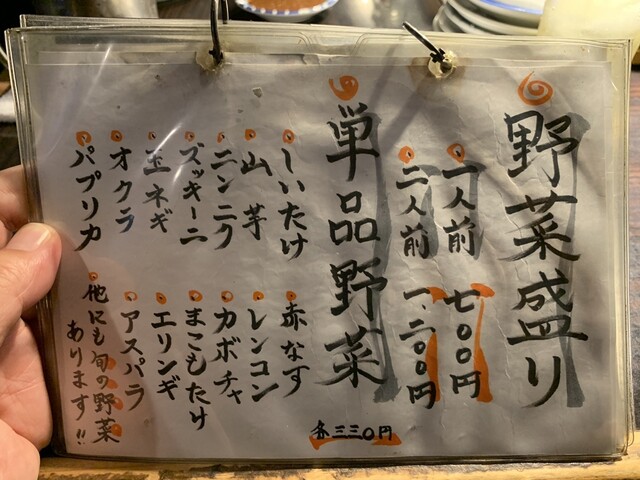 野菜盛り
一人前 七〇〇円
二人前 一、二〇〇円
単品野菜
各三三〇円
しいたけ
山芋
ニンニク
ズッキーニ
玉ネギ
オクラ
パプリカ
赤なす
レンコン
カボチャ
まこもたけ
エリンギ
アスパラ
他にも旬の野菜
あります!!